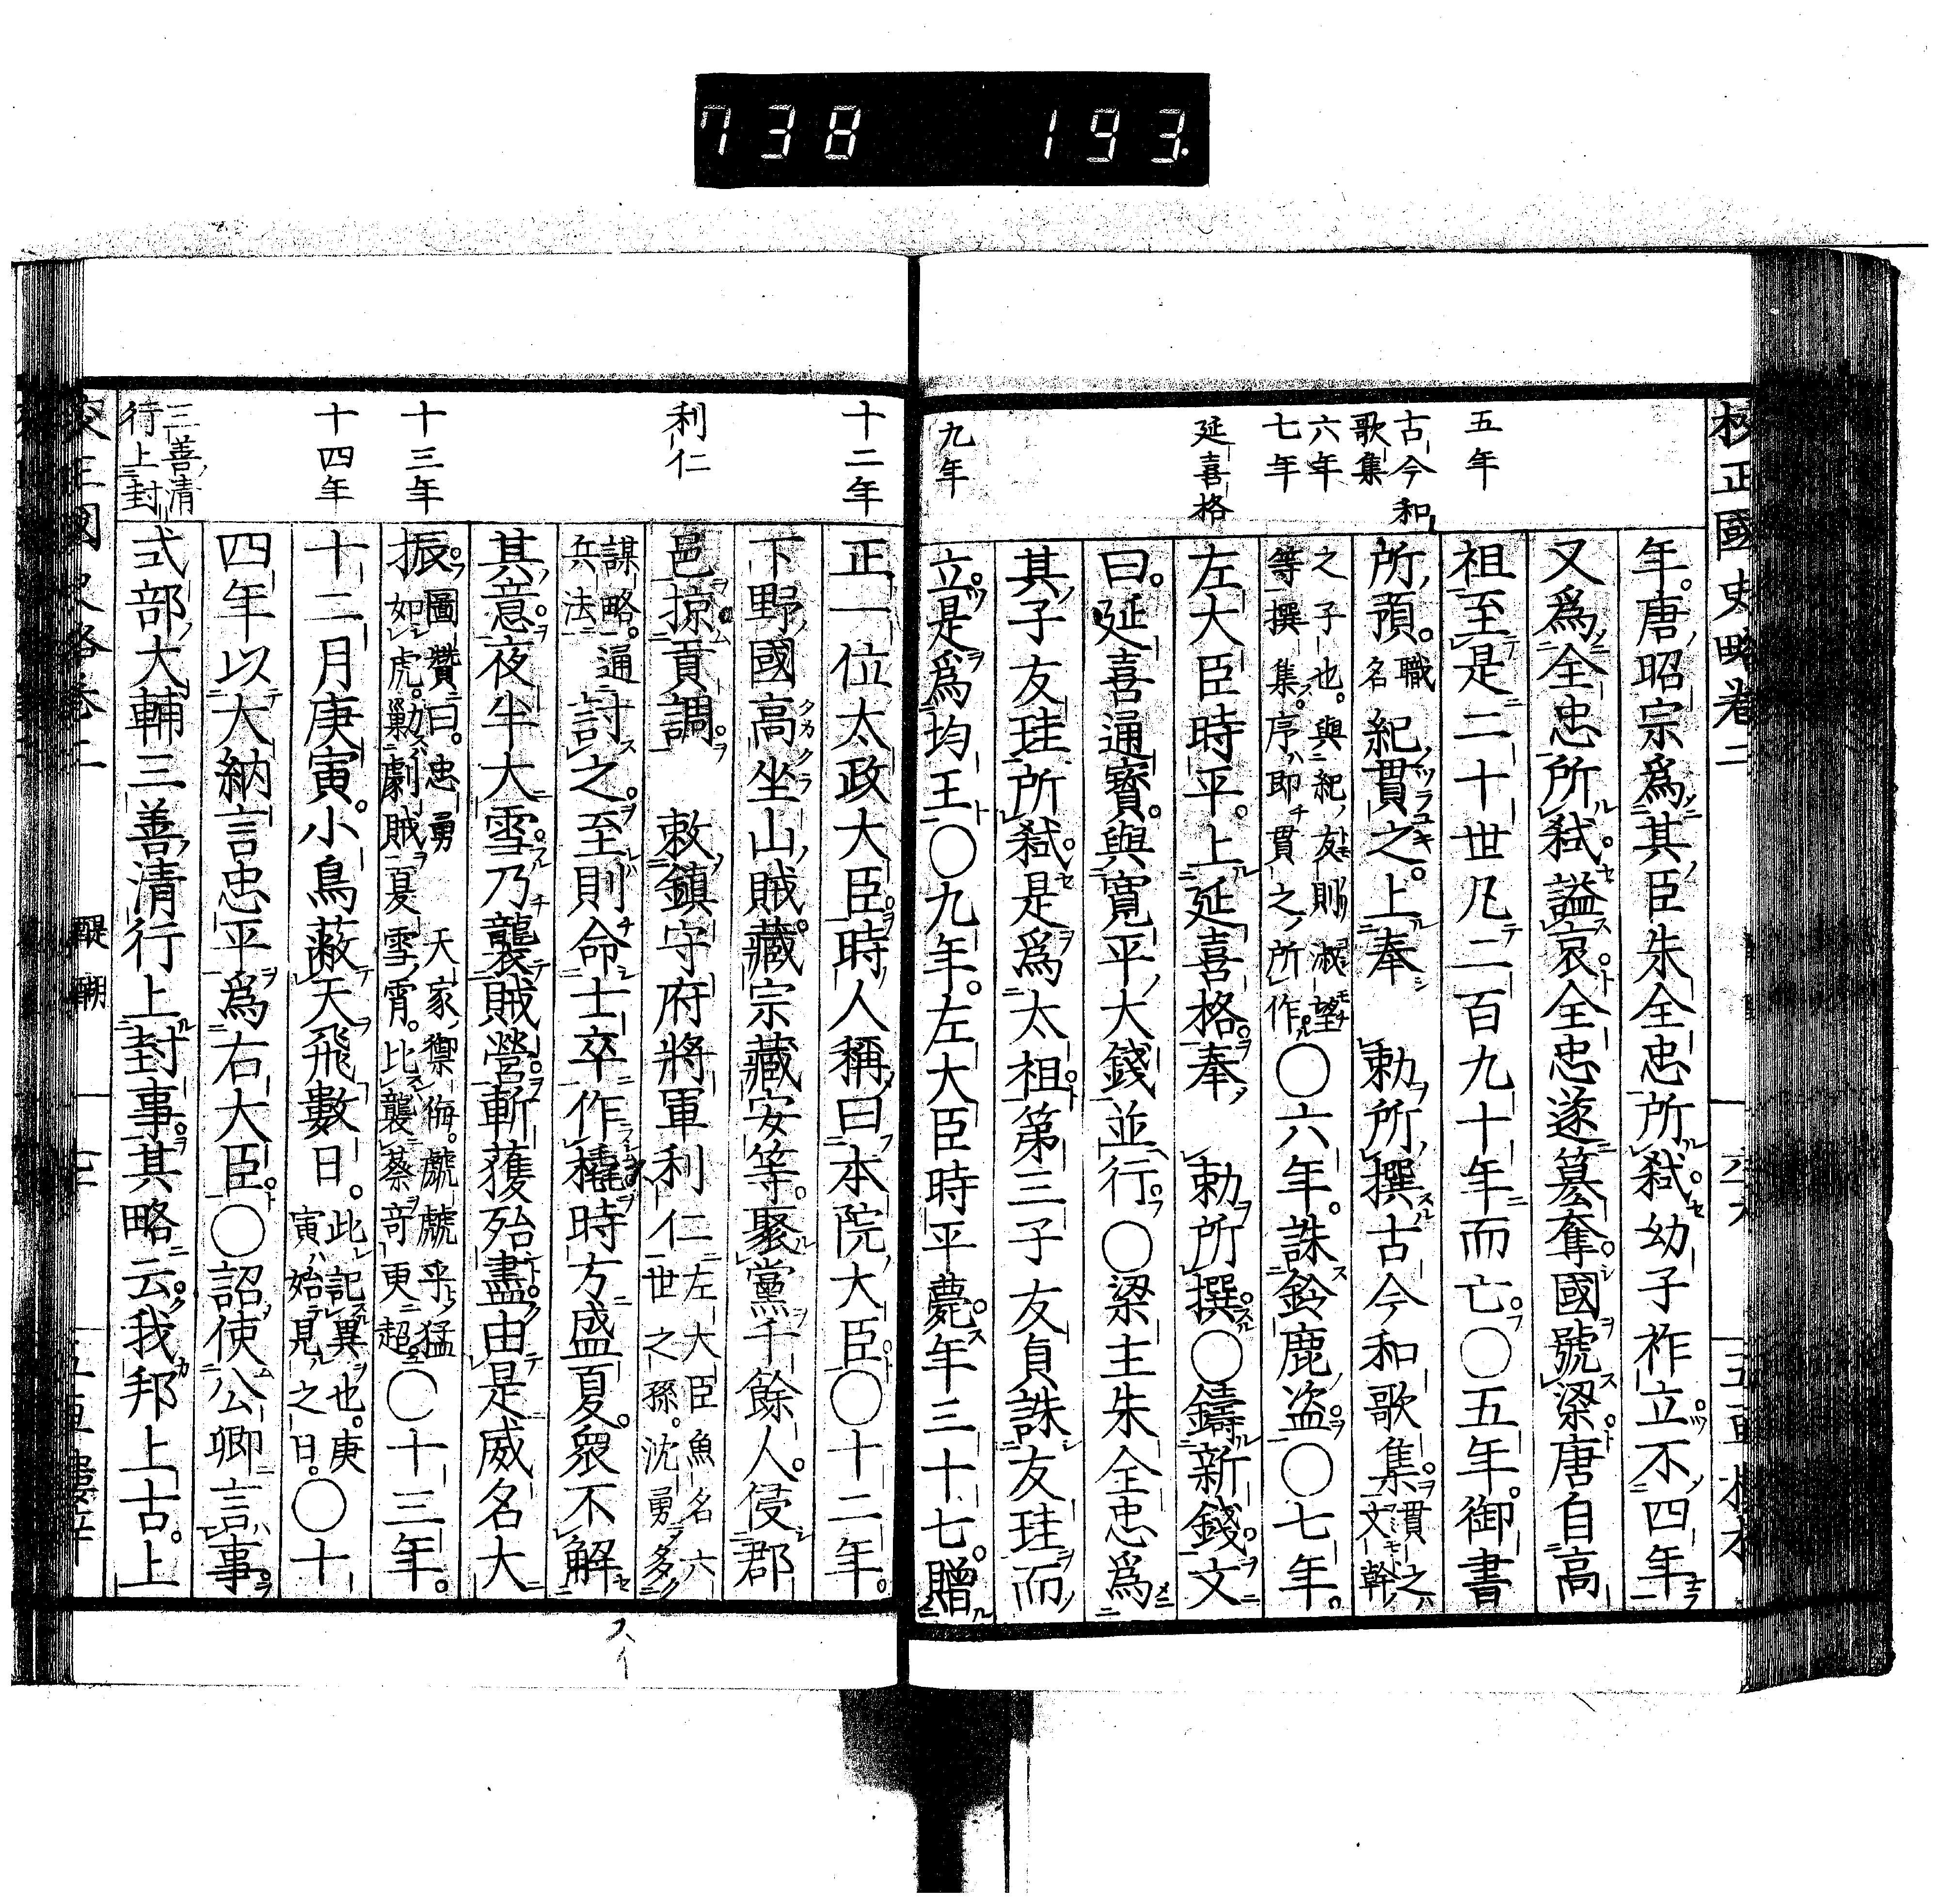 738 193.
校正國史略卷二
五年
古今和
歌集
六年
七年
延喜格
九年
年。唐昭宗爲其臣朱全忠所弑。幼子祚立。不四年
又爲全忠所弑。諡哀。全忠遂簒奪。國號梁。唐自高
祖至是二十世凡二百九十年而亡。〇五年。御書
所預。職名紀貫之。上奉 勅所撰古今和歌集。貫之ハ文幹
之子也。與紀友則淑望等撰集。序ハ即貫之所作。〇六年。誅鈴鹿盗。〇七年。
左大臣時平。上延喜格。奉 勅所撰。〇鑄新錢。文
曰。延喜通寳。與寛平大錢並行。〇梁主朱全忠爲
其子友珪所弑。是爲太祖。第三子友貞誅友珪而
立。是爲均王。〇九年。左大臣時平薨。年三十七。贈
十二年
利仁
十三年
十四年
三善清
行上封
正一位太政大臣。時人稱曰本院大臣。〇十二年。
下野國高坐山賊。藏宗藏安等。聚黨千餘人。侵郡
邑。掠貢調。 敕鎮守府將軍利仁左大臣魚名六世之孫。沈勇多
謀略。通兵法討之。至則命士卒作橇。時方盛夏。衆不解
其意。夜半大雪。乃襲賊營。斬獲殆盡。由是威名大
振。圖贊曰。忠勇如虎。勦劇賊巢天家禦侮。虩虩乎猛夏雪霄。比襲蔡奇更超〇十三年。
十二月庚寅。小鳥蔽天飛數日。此記異也。庚寅ハ始見之日。〇十
四年以大納言忠平爲右大臣。〇詔使公卿言事。
式部大輔三善清行上封事。其略云。我邦上古。上
醍醐